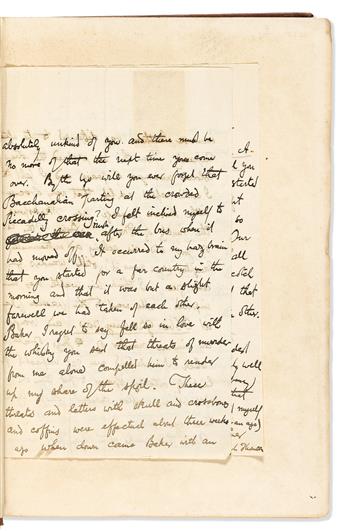 absolutely unkind of you and there must be
no more of that the next time you come
over. By the bye will you ever forget that
Bacchanalian parting at the crowded
Piccadilly crossing? I felt inclined myself to
rush after the bus when it
had moved off. It occurred to my hazy brain
that you started for a far country in the
morning and that it was but a slight
farewell we had taken of each other.
Baker I regret to say fell so in love with
the whisky you sent that threats of murder
from me alone compelled him to render
up my share of the spoil. These
threats and letters with skull and crossbones
and coffins were effectual about three weeks
ago when down came Baker with an
A-
you
started
so
Our
all
that
other.
well
that
myself